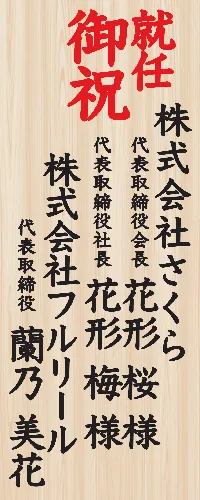 就任
御祝
株式会社さくら
代表取締役会長 花形 桜 様
代表取締役社長 花形 梅 様
株式会社フルリール
代表取締役 蘭乃 美花